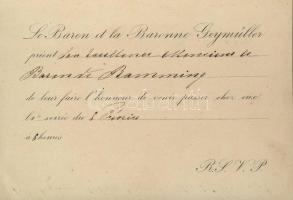 Le Baron et la Baronne Geymüller
prient Son Excellence Monsieur le
Baron de Ramming
de leur faire l'honneur de venir passer chez eux
la soirée du 8 Février
à 8 heures
R. S. V. P.